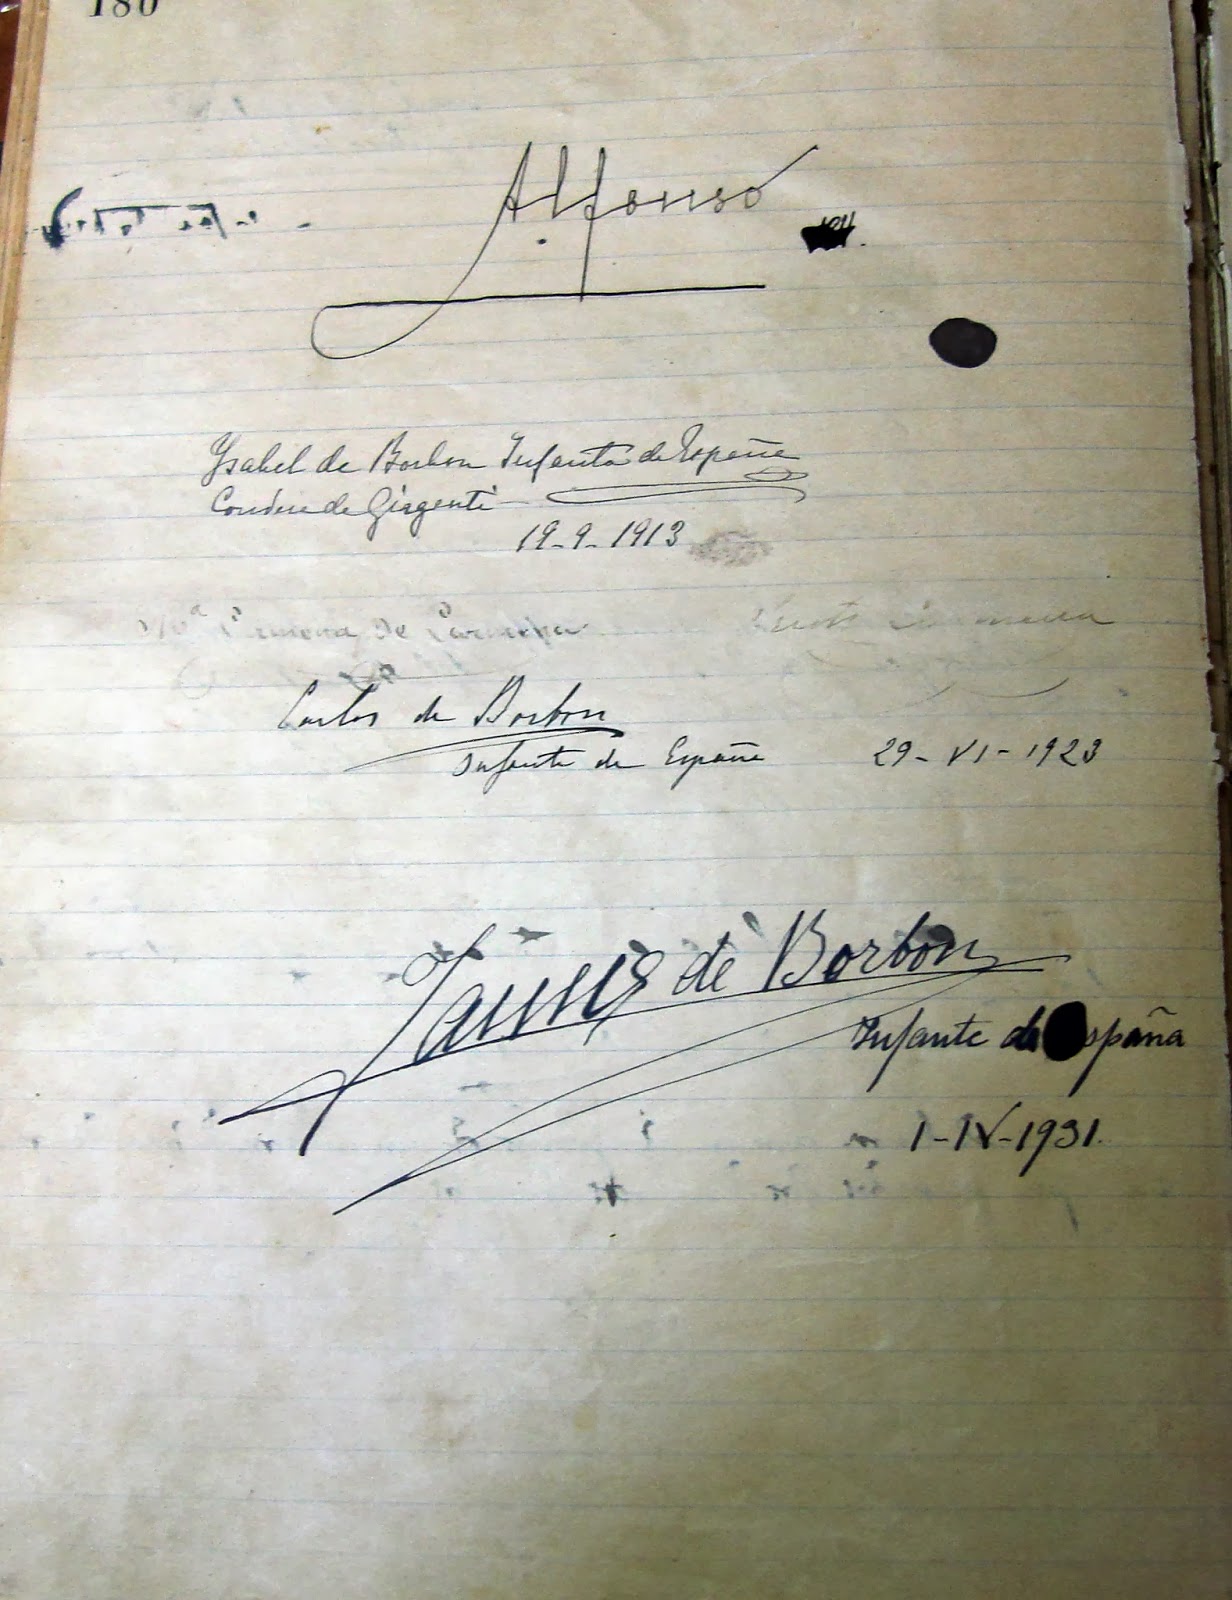 180
Alfonso
Ysabel de Borbon Infanta de España
Condesa de Girgenti
19-9-1913
Carlos de Borbon
Infante de España 29-VI-1923
Jaime de Borbon
Infante de España
1-IV-1931.